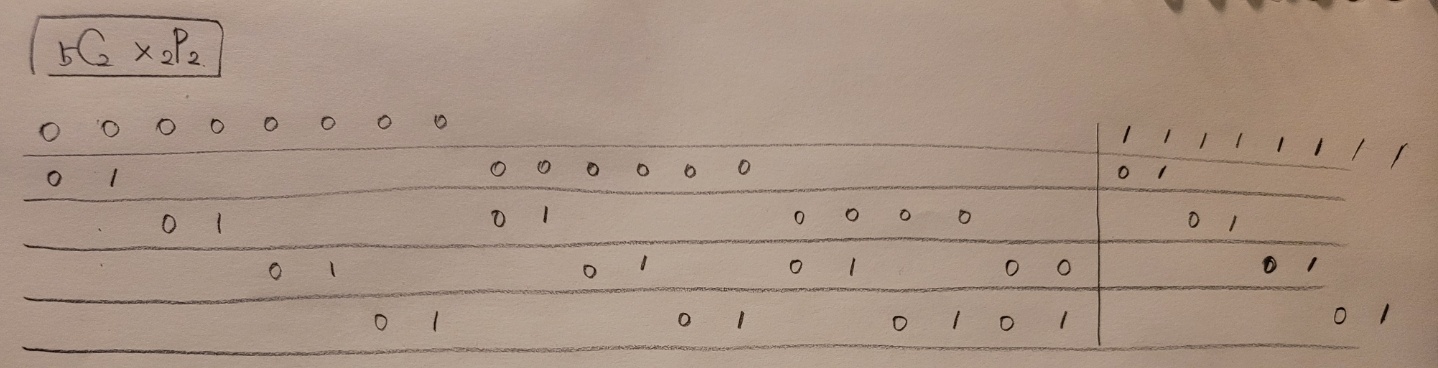 5C2 × 2P2
0 0 0 0 0 0 0 0 1 1 1 1 1 1 1 1
0 1 0 0 0 0 0 0 0 1
0 1 0 1 0 0 0 0 0 1
0 1 0 1 0 1 0 0 0 1
0 1 0 1 0 1 0 1 0 1